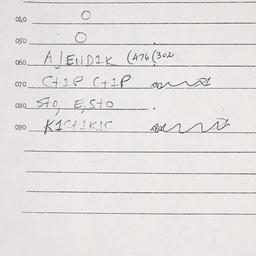 040 O
050 O
060 AJENDIK (476(302
070 C+1P C+1P
080 S+0, E, S+0 .
090 K1C+1K1C